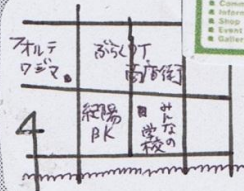 フォルテ
ワジマ
ぶらくり丁
商店街
紀陽
BK
みんなの
学校
Inform
Shop
Event
Galler